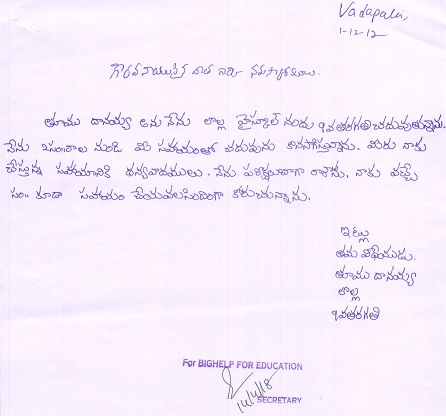 Vadapalli,
1-12-12
గౌరవనీయులైన దాత గారికి నమస్కారములు.
తూము దానయ్య అను నేను లాల్ల హైస్కూల్ నందు 9వతరగతి చదువుతున్నాను.
నేను 2సంరాల నుండి మీ సహాయంతో చదువును కొనసాగిస్తున్నాను. మీరు నాకు
చేస్తున్న సహాయానికి ధన్యవాదములు. నేను పరీక్షలు బాగా రాశాను, నాకు వచ్చే
సం॥ కూడా సహాయం చేయవలసిందిగా కోరుచున్నాను.
ఇట్లు
తమ విధేయుడు.
తూము దానయ్య
లాల్ల
9వతరగతి
For BIGHELP FOR EDUCATION
SECRETARY